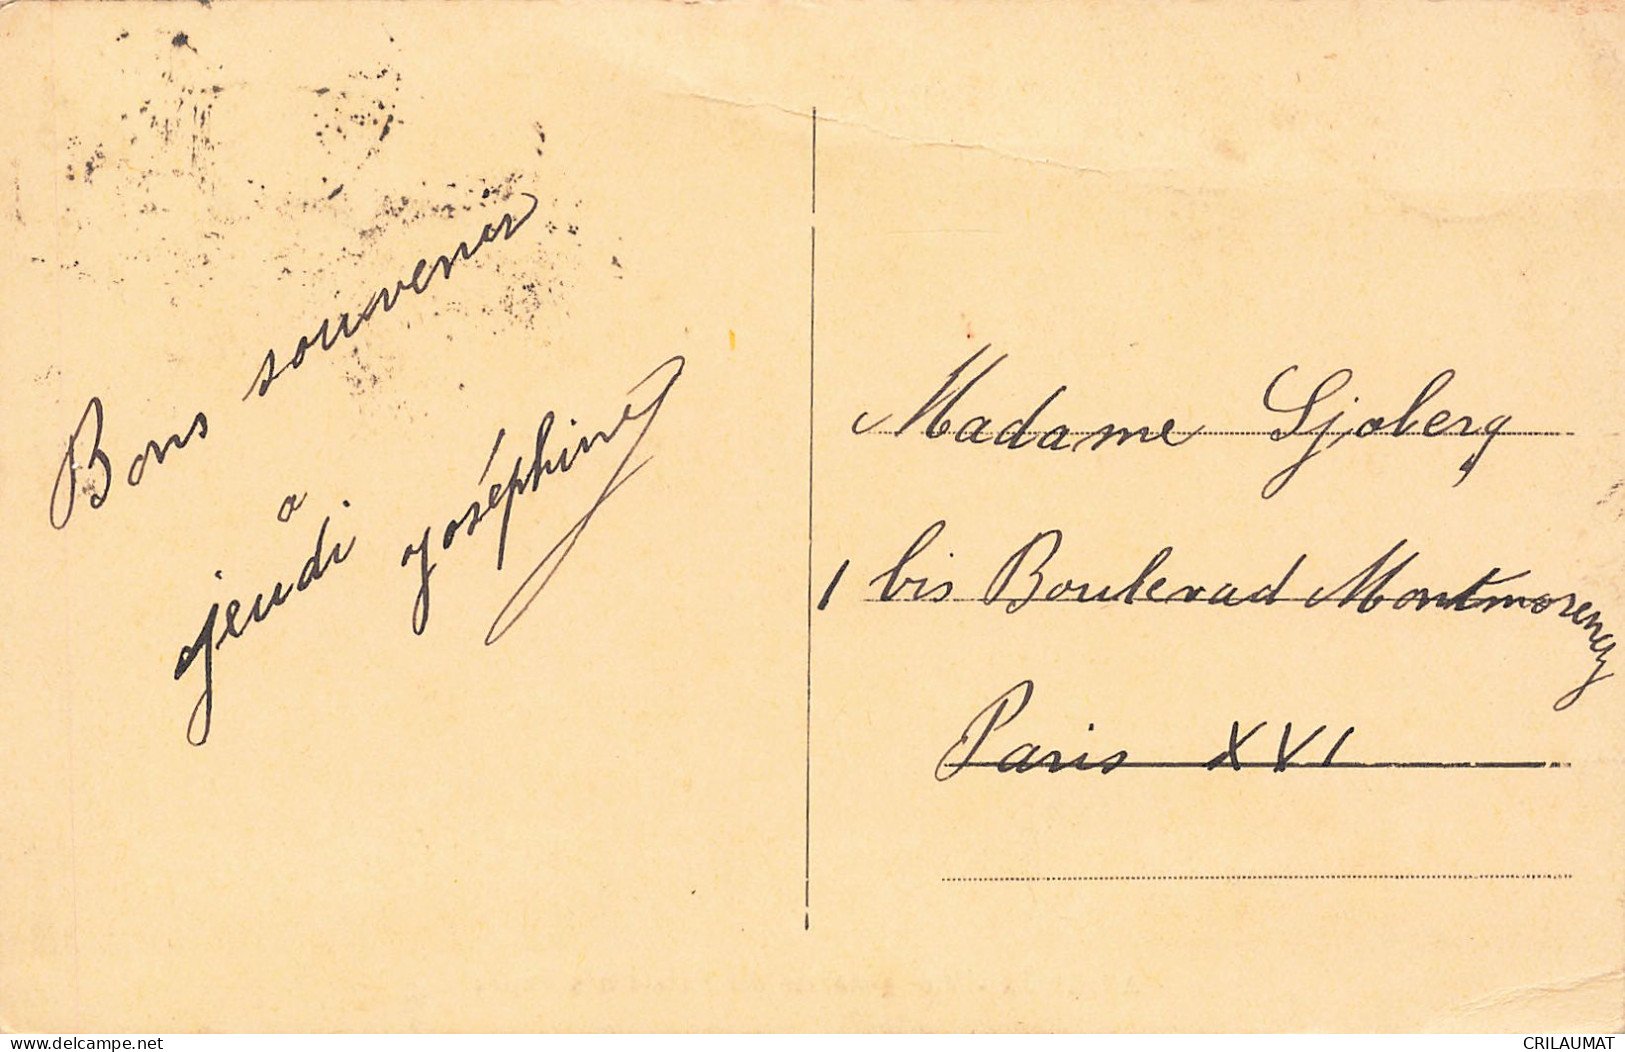 Bons souvenir
a
jeudi
Joséphine
Madame Sjoberg
1 bis Boulevad Montmorency
Paris XVI
www.delcampe.net
CRILAUMAT